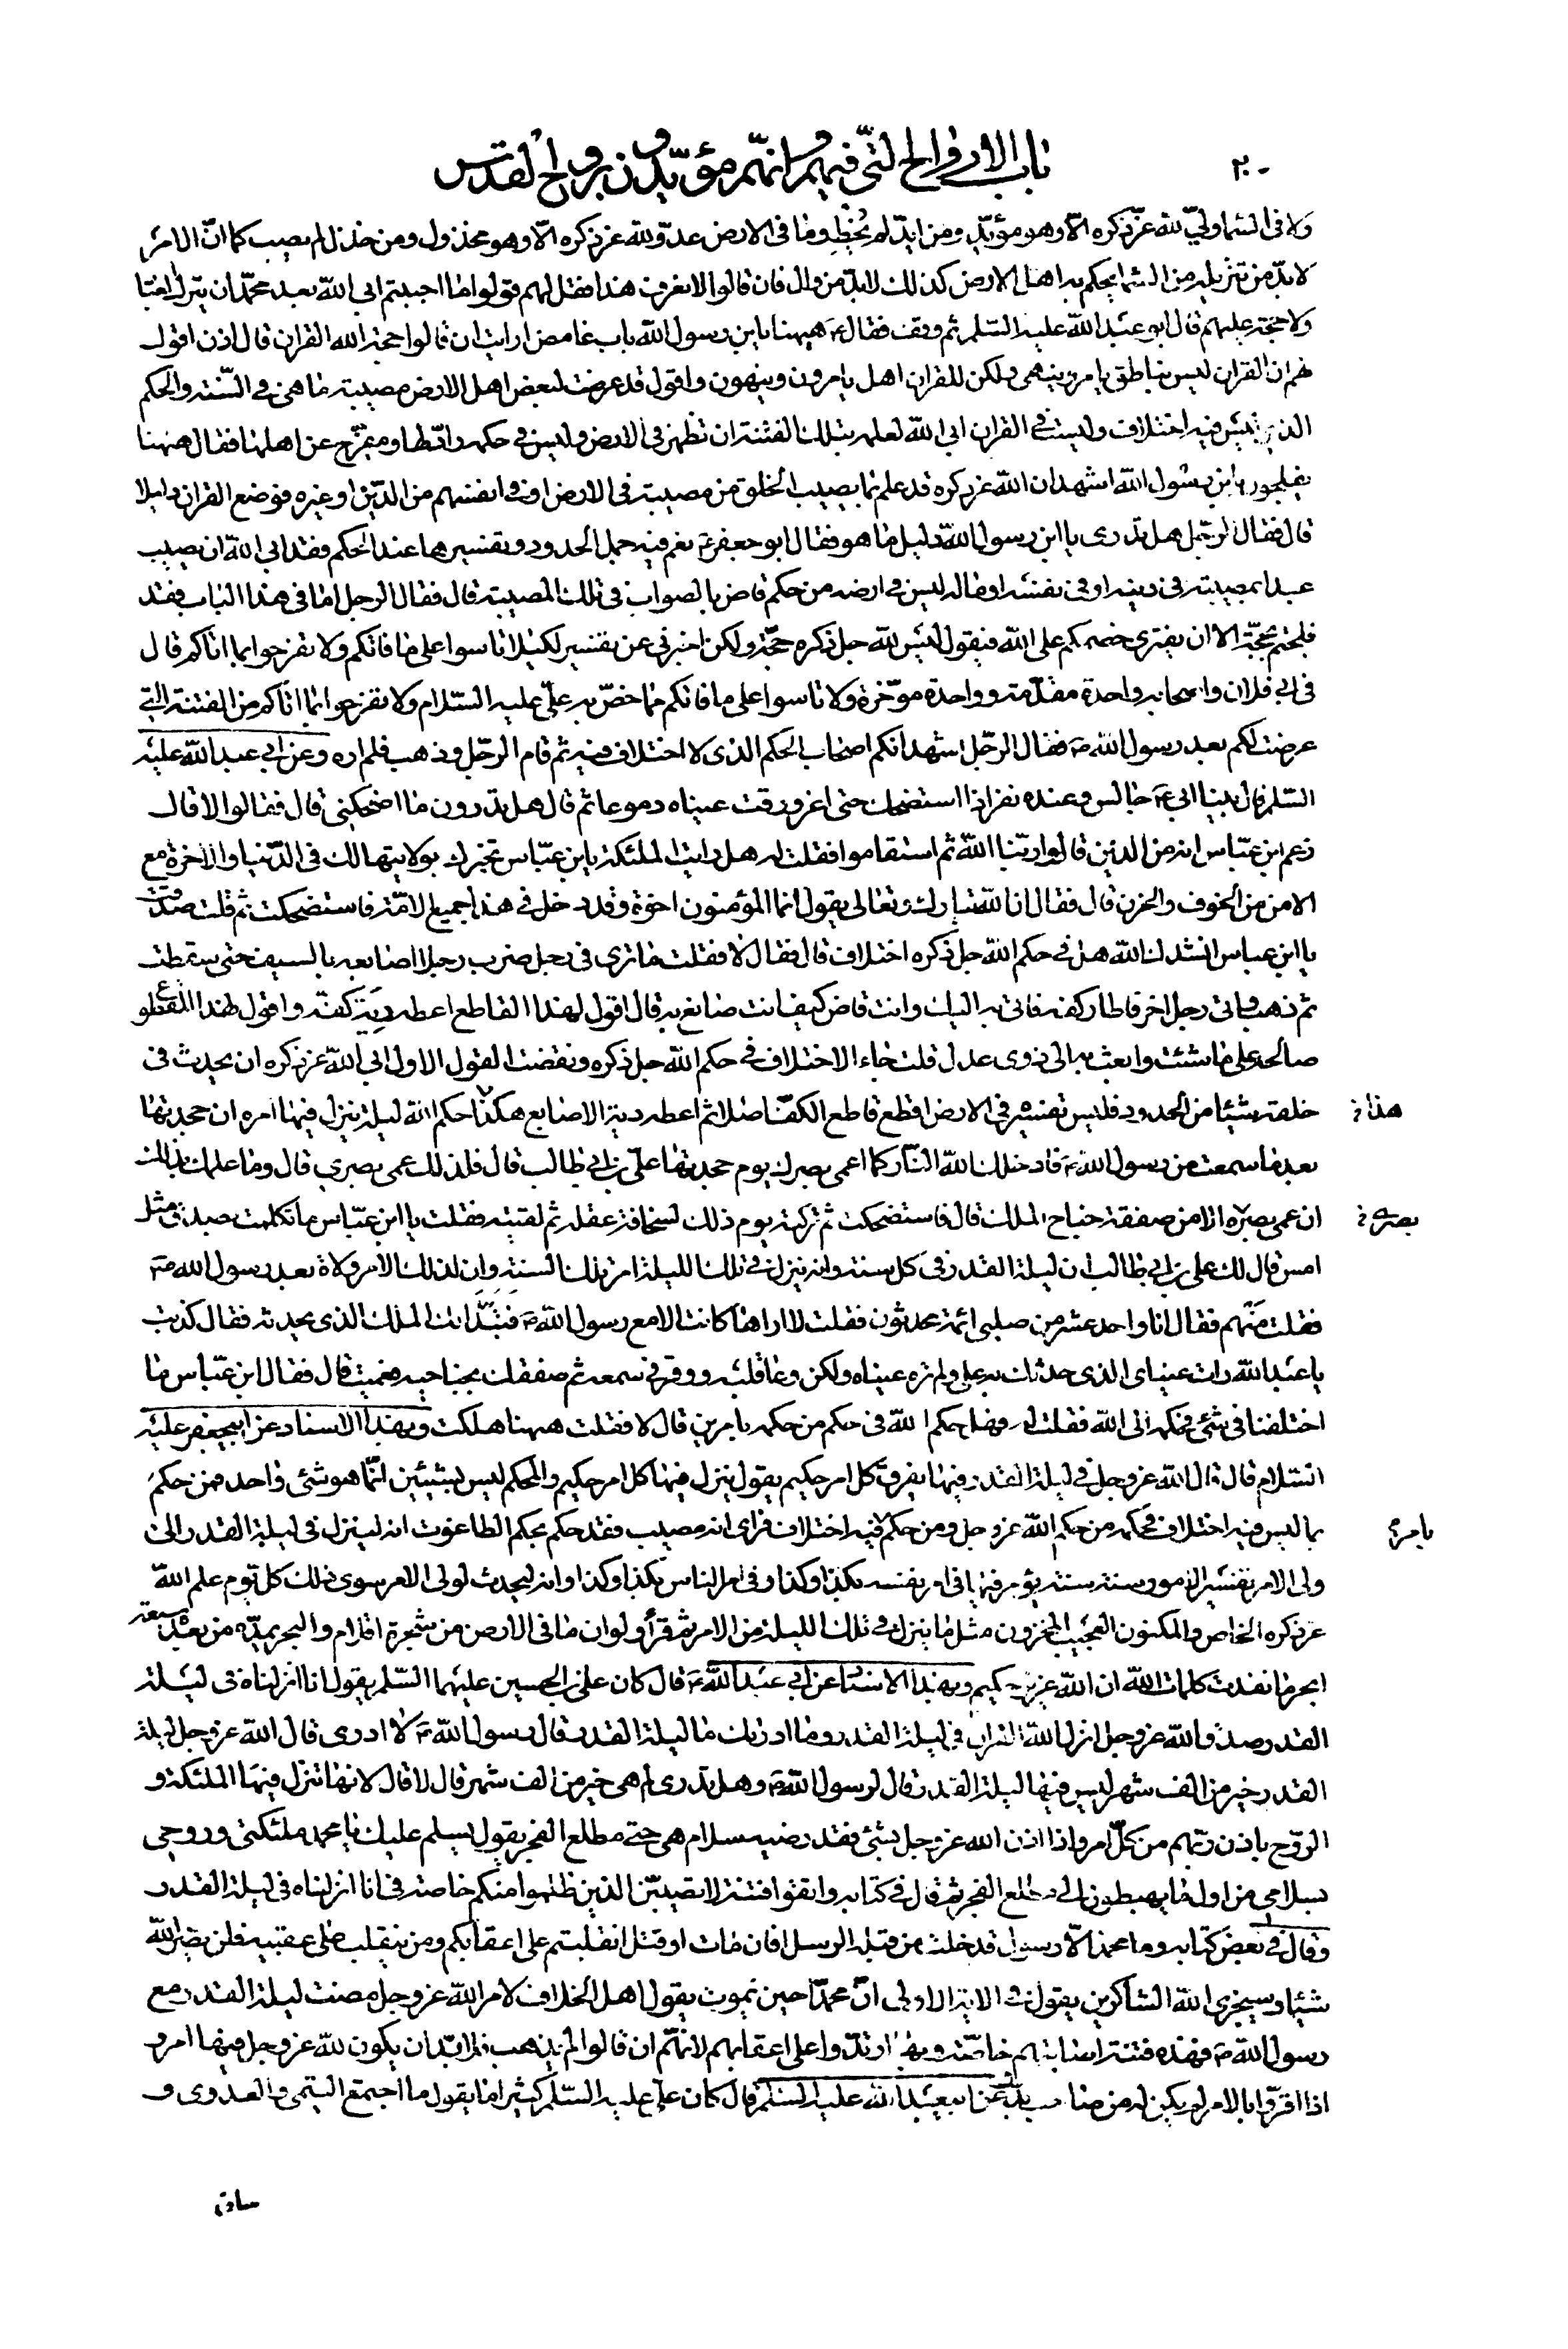 ٢٠٠
باب الارواح التي فيهم وانهم مؤيدون بروح القدس
ولا في السما ولي لله عز ذكره الا وهو مؤيد ومن ايد لم يخط وما في الارض عدو لله عز ذكره الا وهو مخذول ومن خذل لم يصب كما ان الامر
لا بد من تنزيله من السما يحكم به اهل الارض كذلك لا بد من وال فان قالوا لا نعرف هذا فقل لهم قولوا ما احببتم ابى الله بعد محمد ان يترك العبا
ولا حجة عليهم قال ابو عبد الله عليه السلم ثم وقف فقال ههنا يا بن رسول الله باب غامض ارايت ان قالوا حجة الله القران قال اذن اقول
لهم ان القران ليس بناطق يامر وينهى ولكن للقران اهل يامرون وينهون واقول قد عرضت لبعض اهل الارض مصيبة ما هي في السنة والحكم
الذي ليس فيه اختلاف وليست في القران ابى الله لعلمه بتلك الفتنة ان تظهر في الارض وليس في حكمه راد لها ومفرج عن اهلها فقال ههنا
يفلجون يا بن رسول الله اشهد ان الله عز ذكره قد علم بما يصيب الخلق من مصيبة في الارض او في انفسهم من الدين او غيره فوضع القران دليلا
قال فقال الرجل هل تدرى يا ابن رسول الله دليل ما هو فقال ابو جعفر ع نعم فيه جمل الحدود وتفسيرها عند الحكم فقد ابى الله ان يصيب
عبدا بمصيبة في دينه او في نفسه او ماله ليس في ارضه من حكم قاض بالصواب في تلك المصيبة قال فقال الرجل اما في هذا الباب فقد
فلجتم بحجة الا ان يفترى خصمكم على الله فيقول ليس لله جل ذكره حجة ولكن اخبرني عن تفسير لكيلا تاسوا على ما فاتكم ولا تفرحوا بما اتاكم قال
في ابي فلان واصحابه واحدة مقدمة وواحدة مؤخرة ولا تاسوا على ما فاتكم مما خص به علي عليه السلام ولا تفرحوا بما اتاكم من الفتنة التي
عرضت لكم بعد رسول الله ص فقال الرجل اشهد انكم اصحاب الحكم الذى لا اختلاف فيه ثم قام الرجل وذهب فلم اره وعن ابي عبد الله عليه
السلم قال بينا ابي ع جالس وعنده نفر اذا استضحك حتى اغرورقت عيناه دموعا ثم قال هل تدرون ما اضحكني قال فقالوا لا قال
زعم ابن عباس انه من الذين قالوا ربنا الله ثم استقاموا فقلت له هل رايت الملئكة يا بن عباس تخبرك بولايتها لك في الدنيا والاخرة مع
الامن من الخوف والحزن قال فقال ان الله تبارك وتعالى يقول انما المؤمنون اخوة وقد دخل في هذا جميع الامة فاستضحكت ثم قلت صدقت
يا ابن عباس انشدك الله هل في حكم الله جل ذكره اختلاف قال فقال لا فقلت ما ترى في رجل ضرب رجلا اصابعه بالسيف حتى سقطت
ثم ذهب واتى رجل اخر فاطار كفه فاتي به اليك وانت قاض كيف انت صانع به قال اقول لهذا القاطع اعطه دية كفه واقول لهذا المقطوع
صالحه على ما شئت وابعث به الى ذوى عدل قلت جاء الاختلاف في حكم الله جل ذكره ونقضت القول الاول ابى الله عز ذكره ان يحدث في
خلقه شيئا من الحدود فليس تفسيره في الارض اقطع قاطع الكف اصلا ثم اعطه دية الاصابع هكذا حكم الله ليلة ينزل فيها امره ان جحدتها
هذا خ
بعد ما سمعت من رسول الله ص فادخلك الله النار كما اعمى بصرك يوم جحدتها على بن ابي طالب قال فلذلك عمى بصري قال وما علمك بذلك
ان عمي بصره الا من صفقة جناح الملك قال فاستضحكت ثم تركته يوم ذلك لسخافة عقله ثم لقيته فقلت يا ابن عباس ما تكلمت بصدق مثل
بصرى خ
امس قال لك علي بن ابي طالب ان ليلة القدر في كل سنة وانه ينزل في تلك الليلة امر تلك السنة وان لذلك الامر ولاة بعد رسول الله ص
فقلت من هم فقال انا واحد عشر من صلبي ائمة محدثون فقلت لا اراها كانت الا مع رسول الله ص فتبدا لك الملك الذى يحدثه فقال كذبت
يا عبد الله رات عيناي الذى حدثك به علي ولم تره عيناه ولكن وعا قلبه ووقر في سمعه ثم صفقك بجناحيه فعميت قال فقال ابن عباس ما
اختلفنا في شئ فحكمه الى الله فقلت له فهل حكم الله في حكم من حكمه بامرين قال لا فقلت ههنا هلكت وبهذا الاسناد عن ابيجعفر عليه
السلام قال قال الله عز وجل في ليلة القدر فيها يفرق كل امر حكيم يقول ينزل فيها كل امر حكيم والمحكم ليس بشيئين انما هو شئ واحد فمن حكم
بما ليس فيه اختلاف فحكمه من حكم الله عز وجل ومن حكم فيه اختلاف فراى انه مصيب فقد حكم بحكم الطاغوت انه لينزل في ليلة القدر الى
بامر خ
ولى الامر تفسير الامور سنة سنة يؤمر فيها في امر نفسه بكذا وكذا وفي امر الناس بكذا وكذا وانه ليحدث لولى الامر سوى ذلك كل يوم علم الله
عز ذكره الخاص والمكنون العجيب المخزون مثل ما ينزل في تلك الليلة من الامر ثم قرأ ولو ان ما في الارض من شجرة اقلام والبحر يمده من بعده سبعة
ابحر ما نفدت كلمات الله ان الله عزيز حكيم وبهذا الاسناد عن ابي عبد الله ع قال كان علي بن الحسين عليهما السلم يقول انا انزلناه في ليلة
القدر صدق الله عز وجل انزل الله القران في ليلة القدر وما ادريك ما ليلة القدر قال رسول الله ص لا ادرى قال الله عز وجل ليلة
القدر خير من الف شهر ليس فيها ليلة القدر قال لرسول الله ص وهل تدرى لم هي خير من الف شهر قال لا قال لانها تنزل فيها الملئكة و
الروح باذن ربهم من كل امر واذا اذن الله عز وجل بشئ فقد رضيه سلام هي حتى مطلع الفجر يقول يسلم عليك يا محمد ملئكتي وروحي
بسلامي من اول ما يهبطون الى مطلع الفجر ثم قال في كتابه واتقوا فتنة لا تصيبن الذين ظلموا منكم خاصة في انا انزلناه في ليلة القدر
وقال في بعض كتابه وما محمد الا رسول قد خلت من قبله الرسل افان مات او قتل انقلبتم على اعقابكم ومن ينقلب على عقبيه فلن يضر الله
شيئا وسيجزى الله الشاكرين يقول في الاية الاولى ان محمدا حين يموت يقول اهل الخلاف لامر الله عز وجل مضت ليلة القدر مع
رسول الله ص فهذه فتنة اصابتهم خاصة وبها ارتدوا على اعقابهم لانهم ان قالوا لم يذهب فلا بد ان يكون لله عز وجل فيها امر و
اذا اقروا بالامر لم يكن له من صاحب بد وعن ابيعبد الله عليه السلم قال كان علي عليه السلم كثيرا ما يقول ما اجتمع التيمي والعدوى و